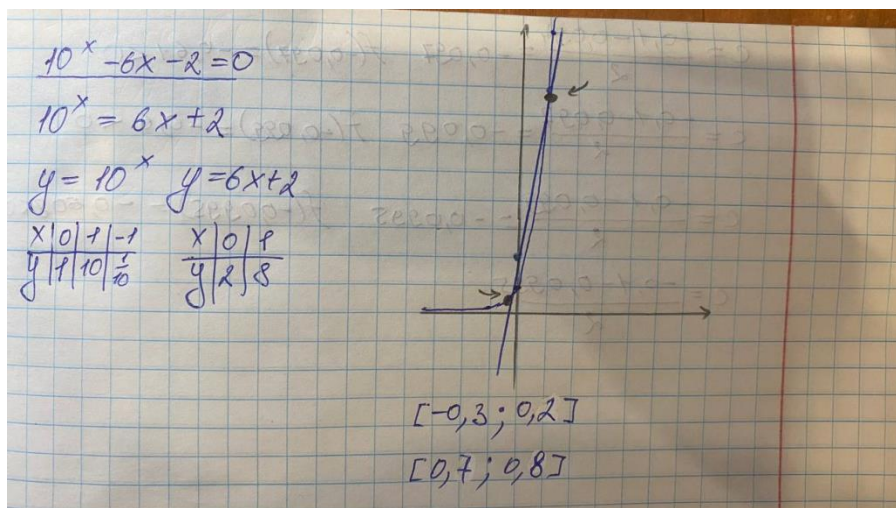 10^x - 6x - 2 = 0
10^x = 6x + 2
y = 10^x y = 6x+2
x | 0 | 1 | -1
y | 1 | 10 | 1/10
x | 0 | 1
y | 2 | 8
[-0,3 ; 0,2]
[0,7 ; 0,8]